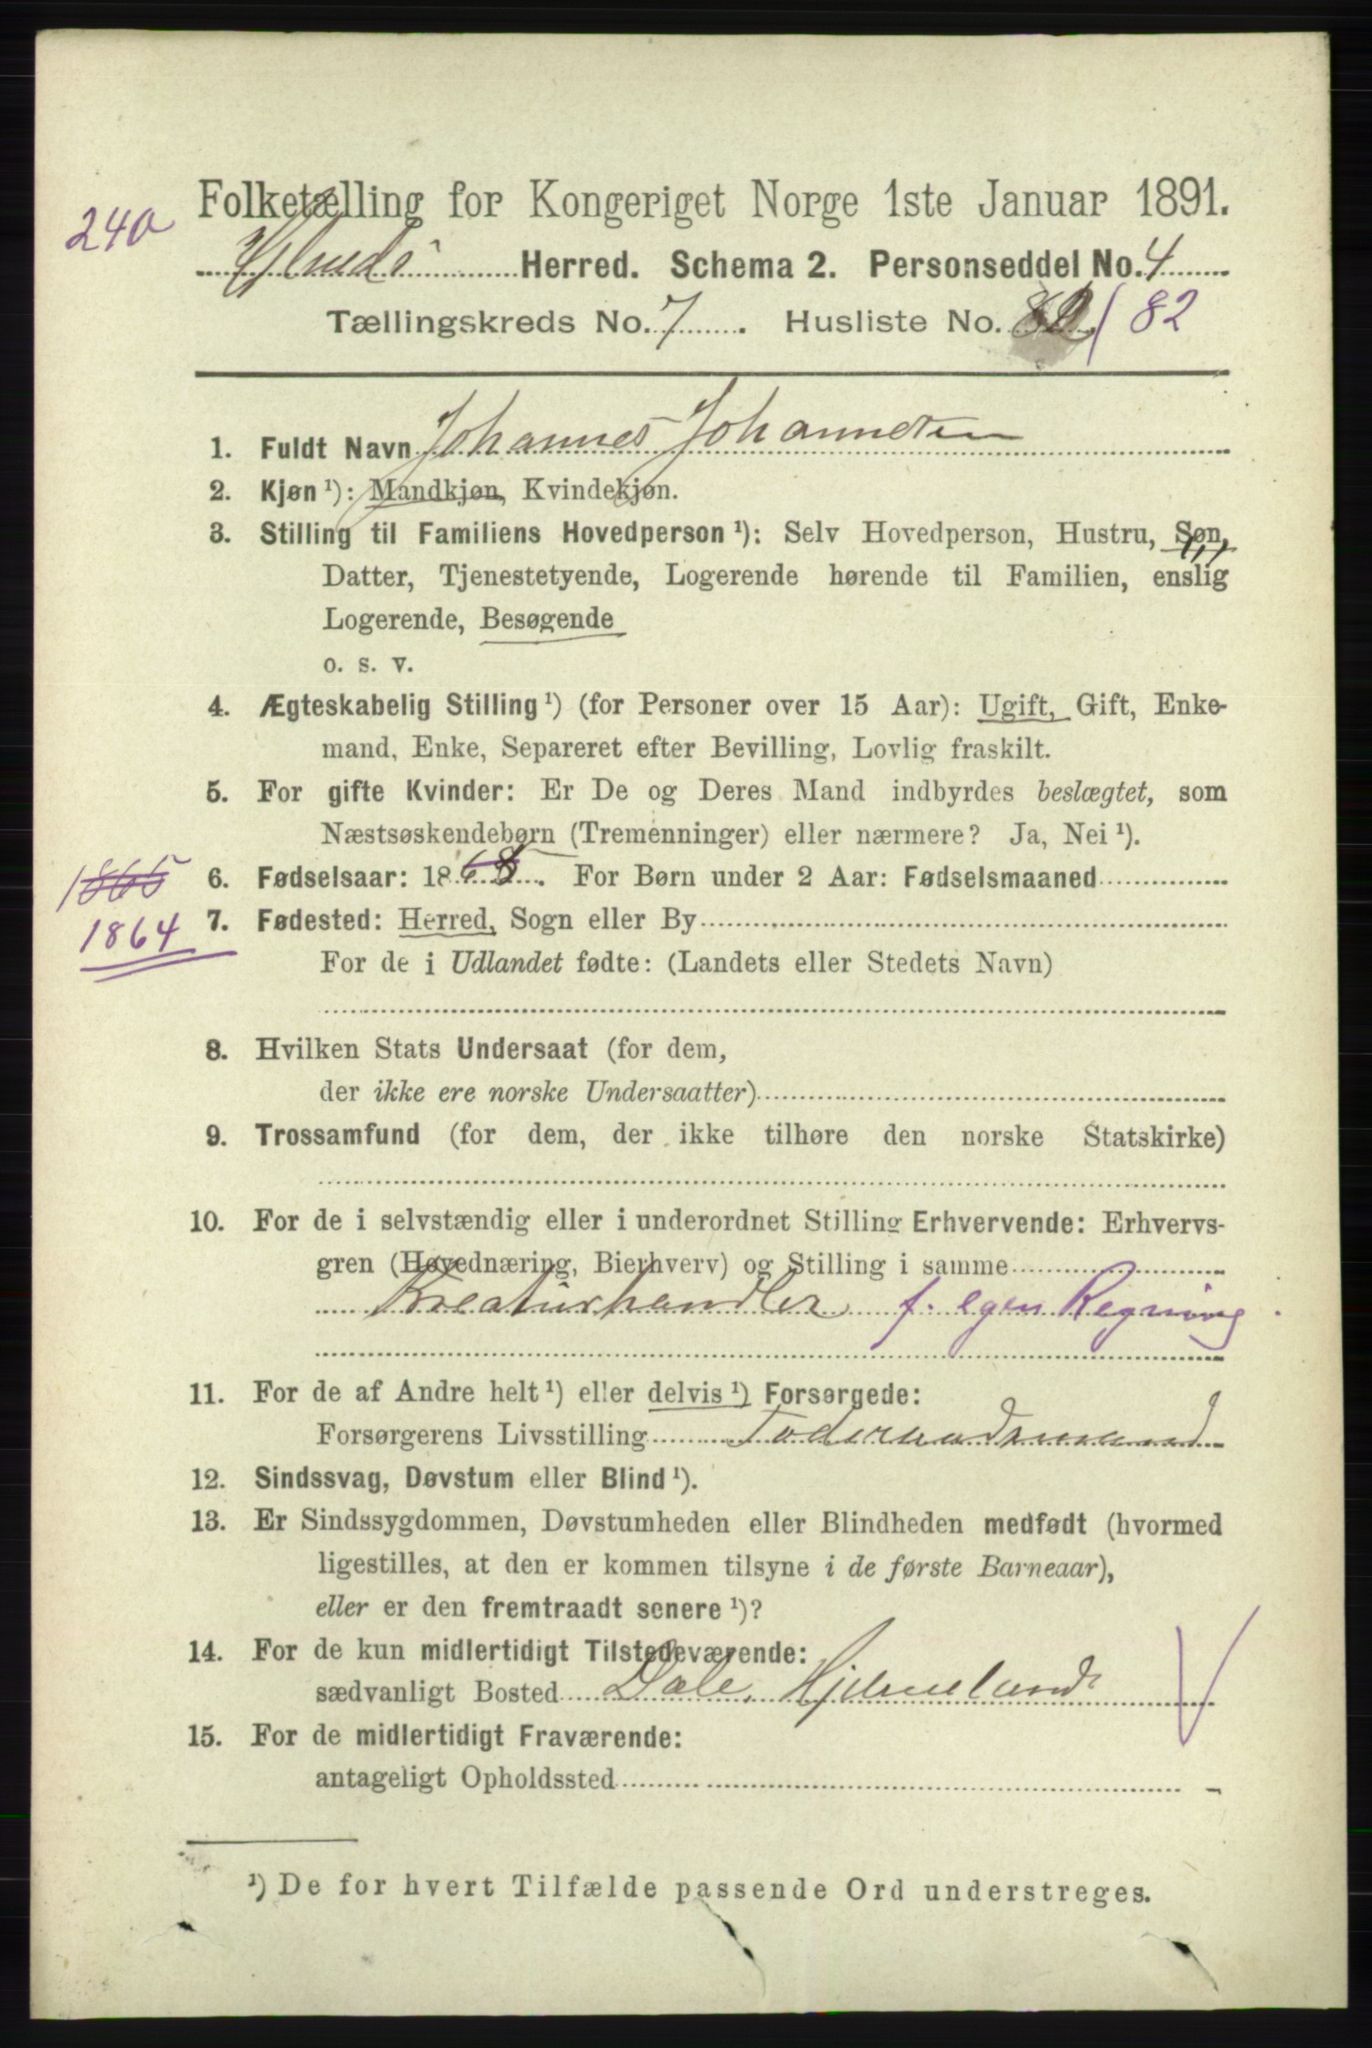 Folketælling for Kongeriget Norge 1ste Januar 1891.
240
Herred. Schema 2. Personseddel No. 4
Tællingskreds No. 7. Husliste No. 82 / 82
1. Fuldt Navn Johannes Johannesen
2. Kjøn ¹): Mandkjøn, Kvindekjøn.
3. Stilling til Familiens Hovedperson ¹): Selv Hovedperson, Hustru, Søn,
Datter, Tjenestetyende, Logerende hørende til Familien, enslig
Logerende, Besøgende
o. s. v.
4. Ægteskabelig Stilling ¹) (for Personer over 15 Aar): Ugift, Gift, Enke-
mand, Enke, Separeret efter Bevilling, Lovlig fraskilt.
5. For gifte Kvinder: Er De og Deres Mand indbyrdes beslægtet, som
Næstsøskendebørn (Tremenninger) eller nærmere? Ja, Nei ¹).
1865
6. Fødselsaar: 18 . For Børn under 2 Aar: Fødselsmaaned
1864
7. Fødested: Herred, Sogn eller By
For de i Udlandet fødte: (Landets eller Stedets Navn)
8. Hvilken Stats Undersaat (for dem,
der ikke ere norske Undersaatter)
9. Trossamfund (for dem, der ikke tilhøre den norske Statskirke)
10. For de i selvstændig eller i underordnet Stilling Erhvervende: Erhvervs-
gren (Hovednæring, Bierhverv) og Stilling i samme
Kreaturhandler f. egen Regning.
11. For de af Andre helt ¹) eller delvis ¹) Forsørgede:
Forsørgerens Livsstilling Føderaadsmand
12. Sindssvag, Døvstum eller Blind ¹).
13. Er Sindssygdommen, Døvstumheden eller Blindheden medfødt (hvormed
ligestilles, at den er kommen tilsyne i de første Barneaar),
eller er den fremtraadt senere ¹)?
14. For de kun midlertidigt Tilstedeværende:
sædvanligt Bosted Dale, Hjelmeland
15. For de midlertidigt Fraværende:
antageligt Opholdssted
¹) De for hvert Tilfælde passende Ord understreges.